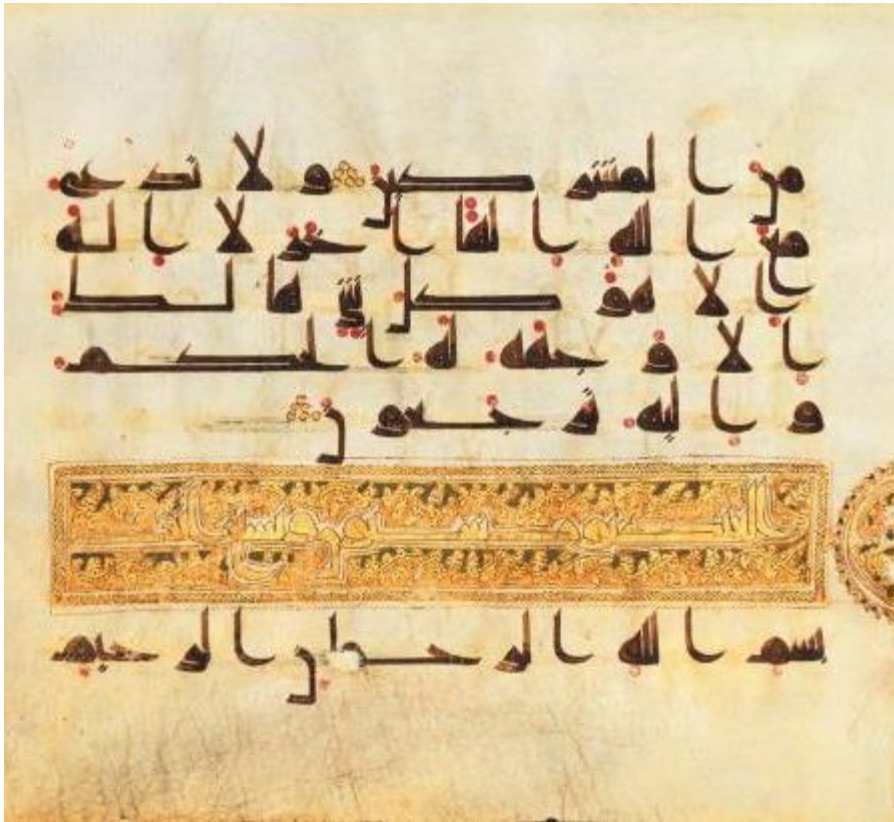 من المشركين ولا تدع
مع الله الها اخر لا اله
الا هو كل شى هالك
الا وجهه له الحكم
واليه ترجعون
ستون وتسع
بسم الله الرحمن الرحيم